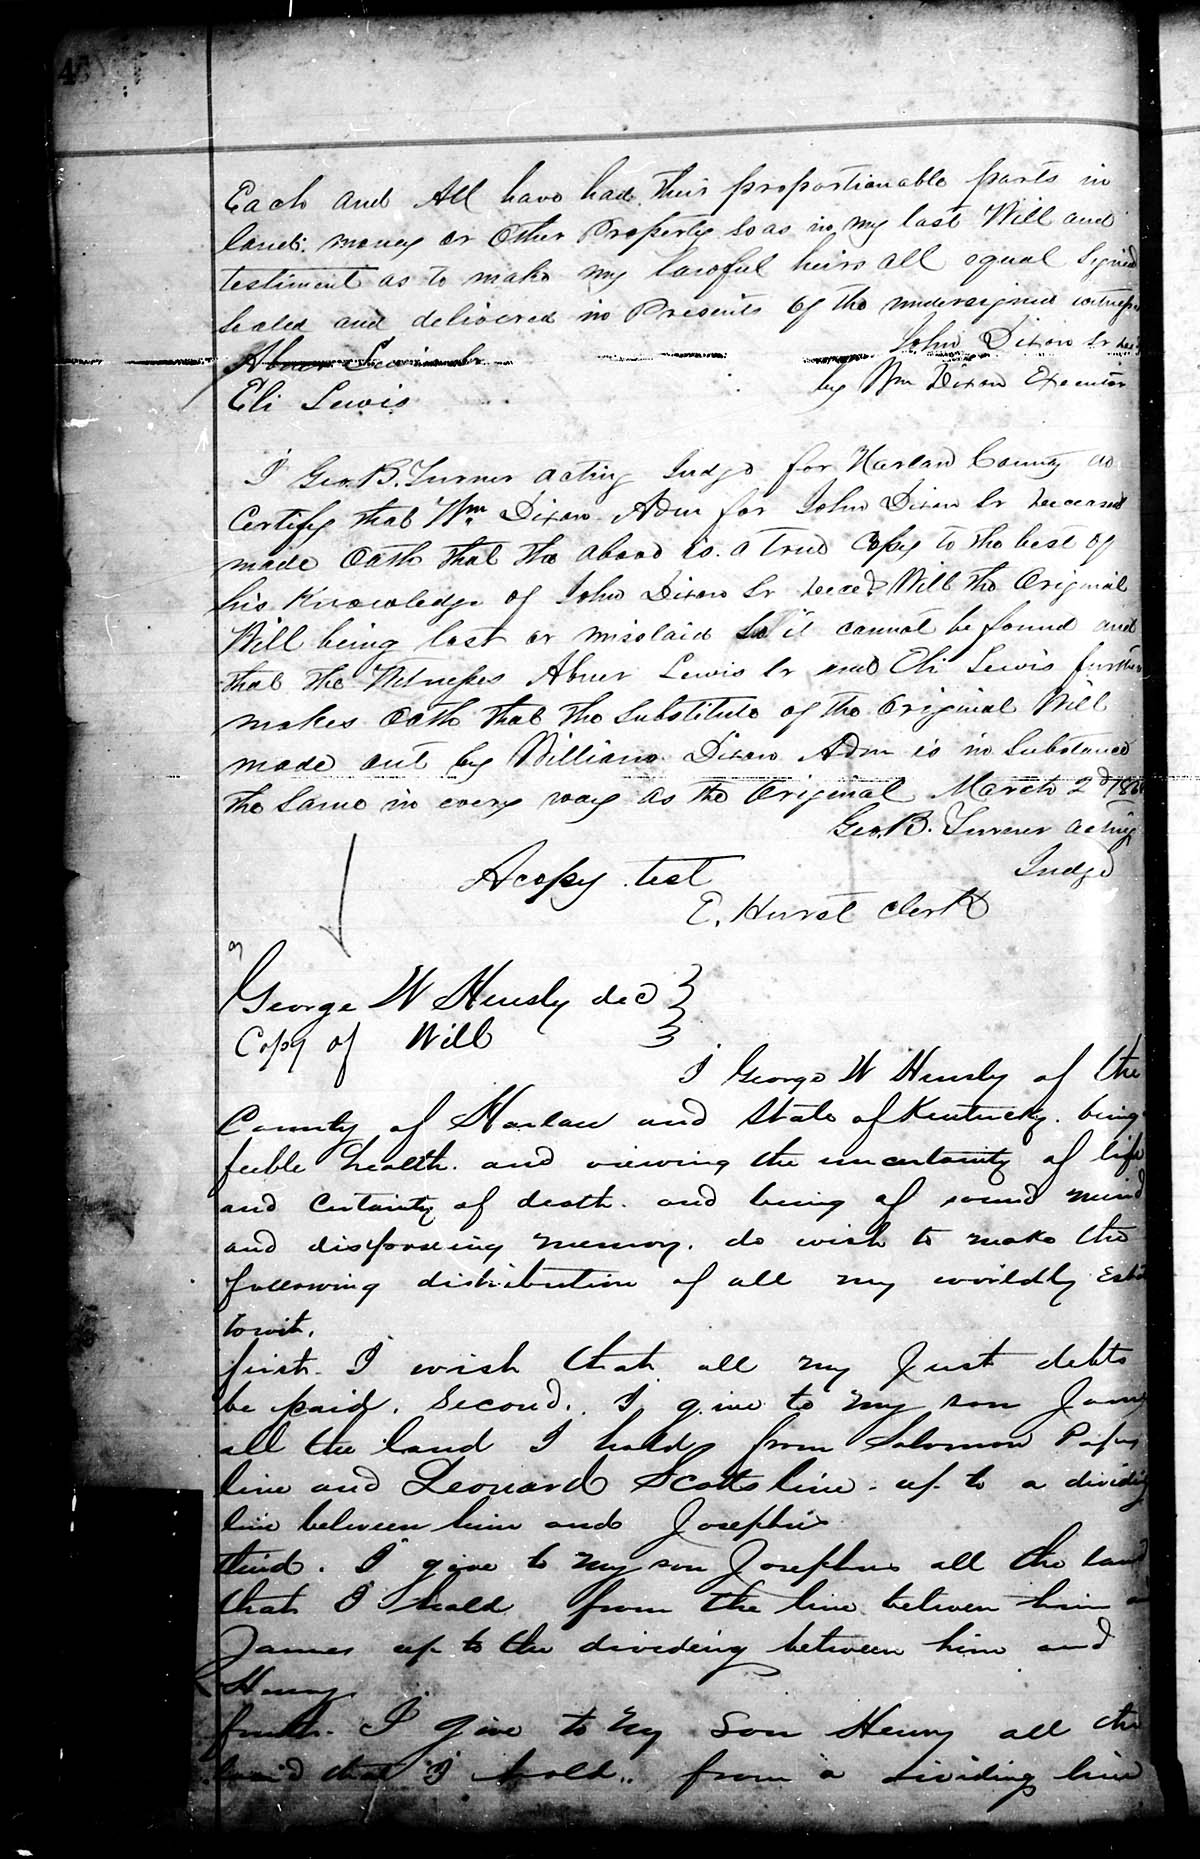 Each and All have had their proportionable parts in
land. money or Other Property so as in my last Will and
testiment as to make my lawful heirs all equal Signed
Sealed and delivered in Presents of the undersigned witness
John Dixon Sr
Abner Lewis Sr
by Wm Dixon Executor
Eli Lewis
I Geo. B. Turner acting Judge for Harlan County do
Certify that Wm Dixon Adm for John Dixon Sr deceased
made Oath that the above is a true Copy to the best of
his Knowledge of John Dixon Sr Will the Original
Will being lost or mislaid So it cannot be found and
that the Witnesses Abner Lewis Sr and Eli Lewis further
makes Oath that the Substitute of the Original Will
made out by William Dixon Adm is in Substance
the Same in every way as the Original March 2d
Geo. B. Turner acting
Judge
A copy test
E. Hurst Clerk
George W Hensly decd
Copy of Will
I George W Hensly of the
County of Harlan and State of Kentucky. being
feeble health. and viewing the uncertainty of life
and certainty of death. and being of sound mind
and disposeing memory. do wish to make the
following distribution of all my worldly
towit.
first. I wish that all my Just debts
be paid. Second. I give to my son James
all the land I hold from Solomon
line and Leonard Scotts line. up to a dividing
line between him and Josephus
third. I give to my son Josephus all the land
that I hold from the line between him
James up to the divideing between him and
Henry
fourth. I give to my Son Henry all the
land that I hold.. from a dividing line